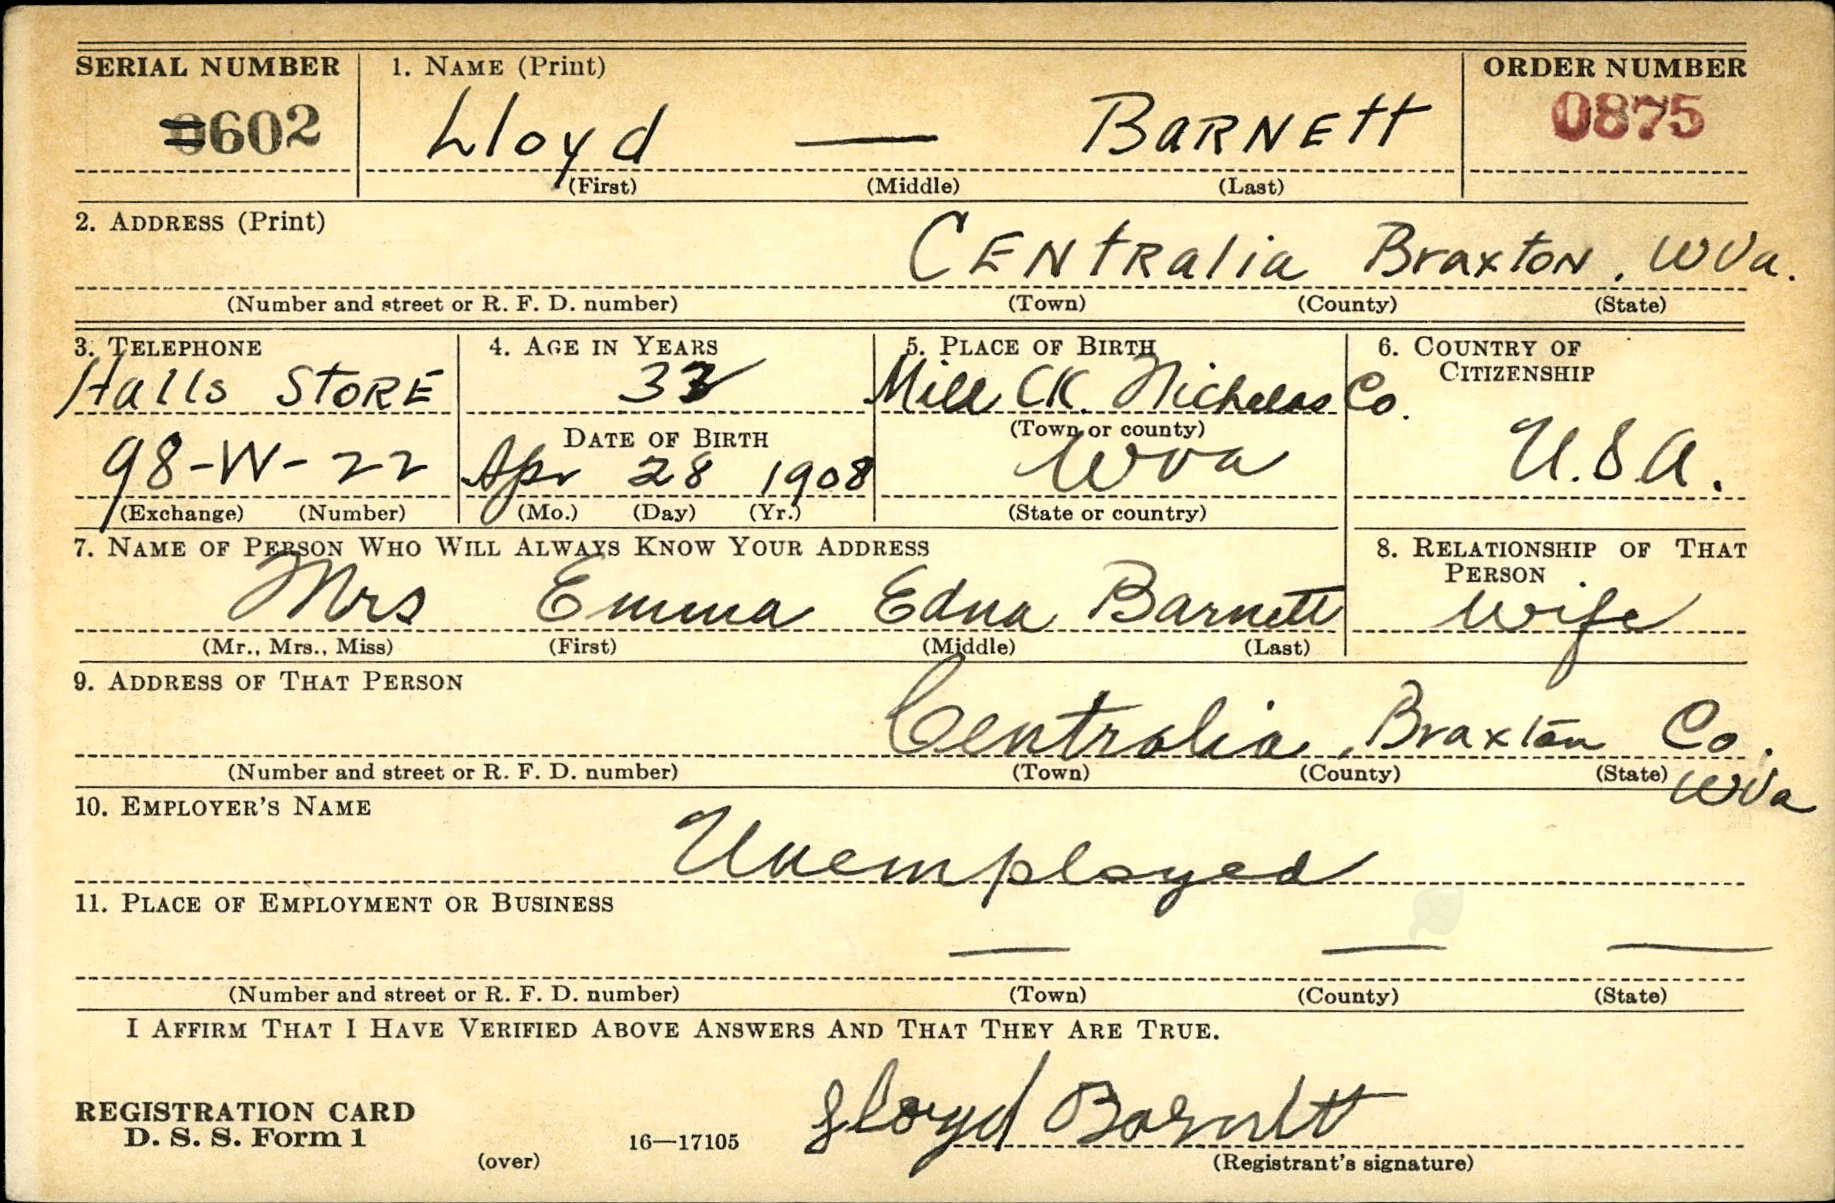 SERIAL NUMBER 1. NAME (Print) ORDER NUMBER
0602 Lloyd — BARNETT 0875
(First) (Middle) (Last)
2. ADDRESS (Print)
CENTRALIA Braxton, WVa.
(Number and street or R. F. D. number) (Town) (County) (State)
3. TELEPHONE 4. AGE IN YEARS 5. PLACE OF BIRTH 6. COUNTRY OF CITIZENSHIP
Halls STORE 32 Mill CK. Nicholas Co.
DATE OF BIRTH (Town or county)
98-W-22 Apr 28 1908 WVa U.S.A.
(Exchange) (Number) (Mo.) (Day) (Yr.) (State or country)
7. NAME OF PERSON WHO WILL ALWAYS KNOW YOUR ADDRESS 8. RELATIONSHIP OF THAT PERSON
Mrs Emma Edna Barnett wife
(Mr., Mrs., Miss) (First) (Middle) (Last)
9. ADDRESS OF THAT PERSON
Centralia, Braxton Co.
(Number and street or R. F. D. number) (Town) (County) (State) WVa
10. EMPLOYER'S NAME
Unemployed
11. PLACE OF EMPLOYMENT OR BUSINESS
— — —
(Number and street or R. F. D. number) (Town) (County) (State)
I AFFIRM THAT I HAVE VERIFIED ABOVE ANSWERS AND THAT THEY ARE TRUE.
REGISTRATION CARD
D. S. S. Form 1 16—17105 Lloyd Barnett
(over) (Registrant's signature)